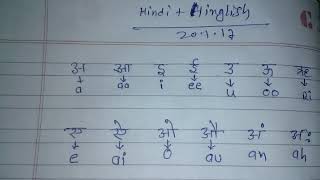 Hindi + Hinglish
20.1.17
अ आ इ ई उ ऊ ऋ
a aa i ee u oo ri
ए ऐ ओ औ अं अः
e ai o au an ah